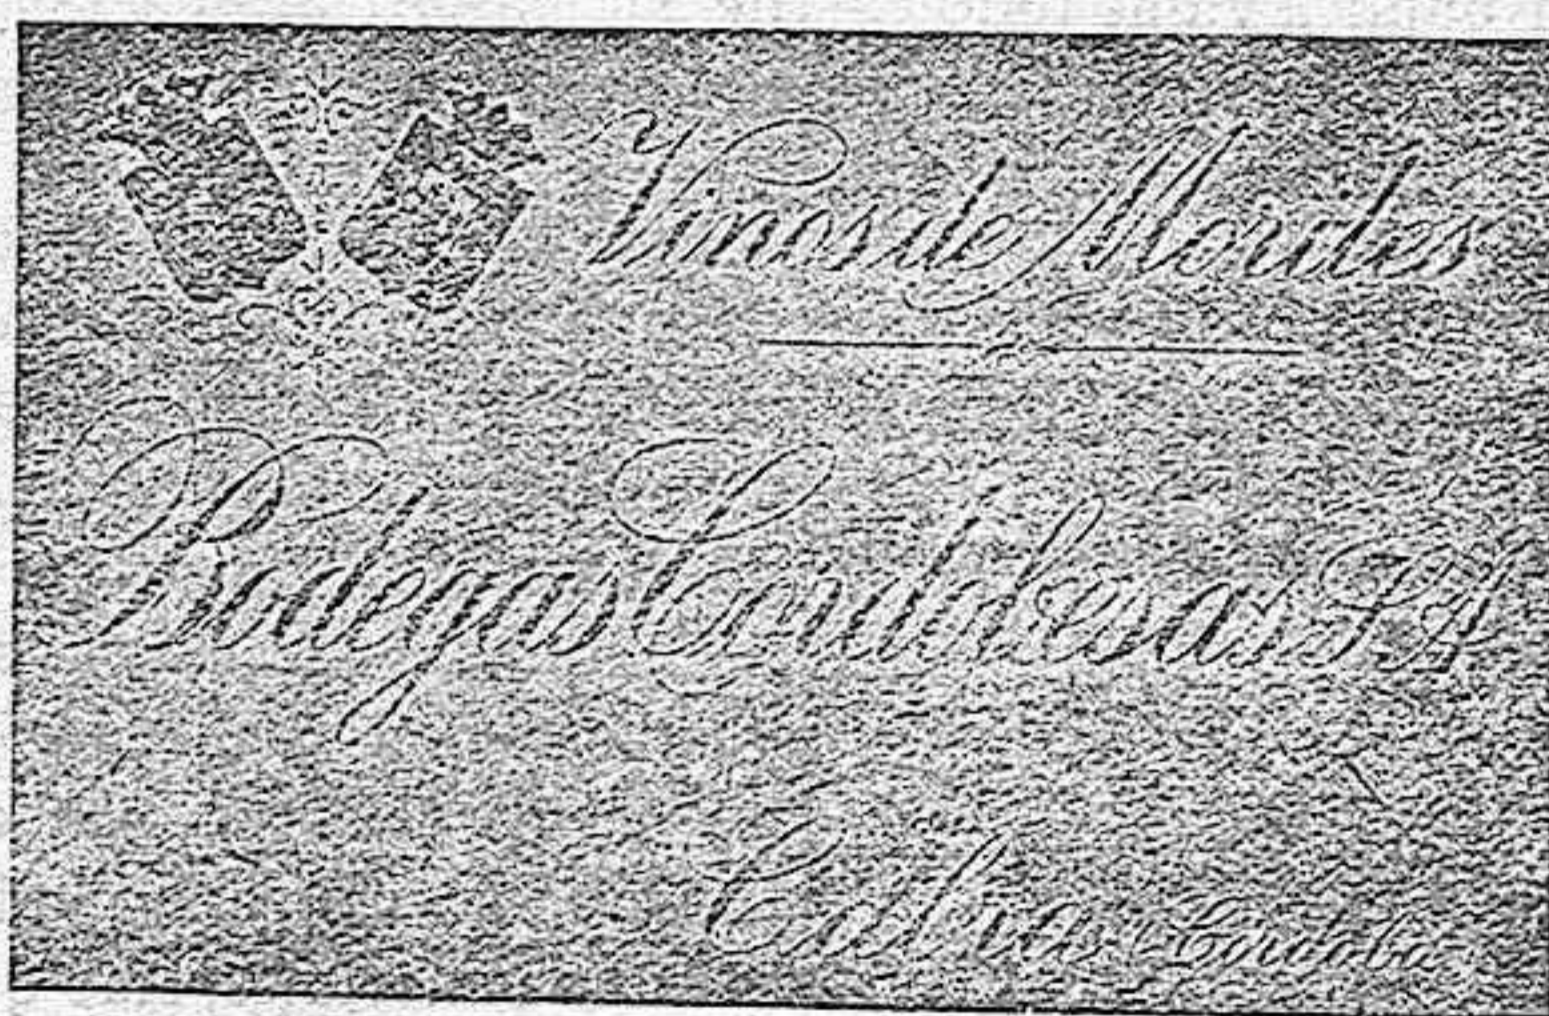 Vinos de Moriles
Bodegas Cordobesas S.A.
Cabra Córdoba